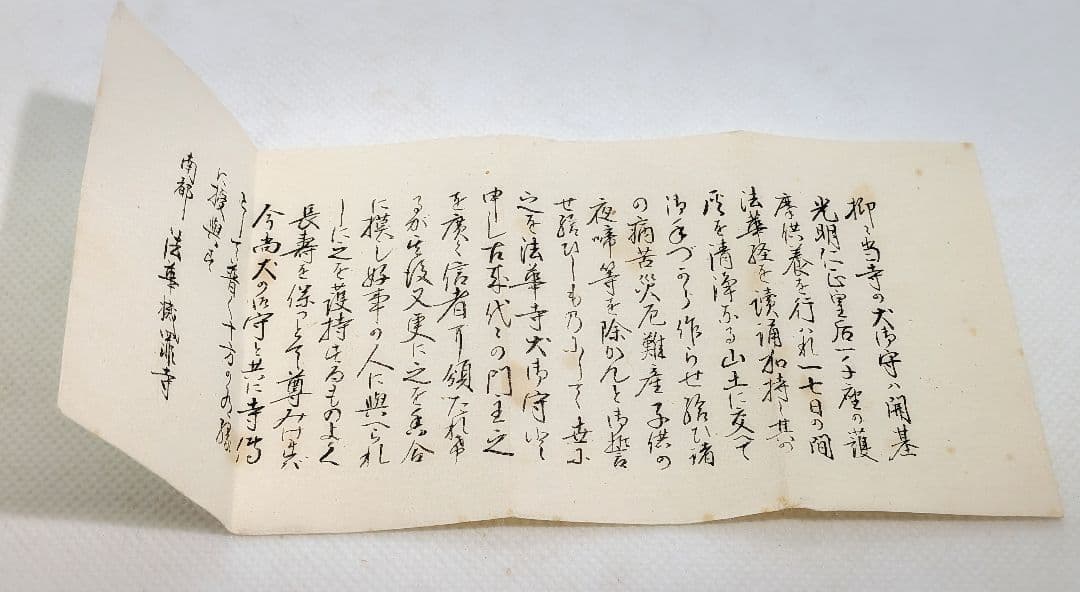 抑〻当寺の犬御守ハ開基
光明仁正皇后一千座の護
摩供養を行ハれ一七日の間
法華経を讀誦加持し其の
灰を清浄なる山土に交へて
御手づから作らせ給ひ諸
の病苦災厄難産子供の
夜啼等を除かんと御誓
せ給ひしものにして世に
之を法華寺犬御守と
申し古来代々の門主之
を廣く信者に頒たれ
るが其後又更に之を香合
に模し好事の人に與へられ
しに之を護持するものよく
長寿を保つとて尊み
今尚犬の御守と共に寺傳
として普く十方の有縁
に授與す
南都 法華滅罪寺